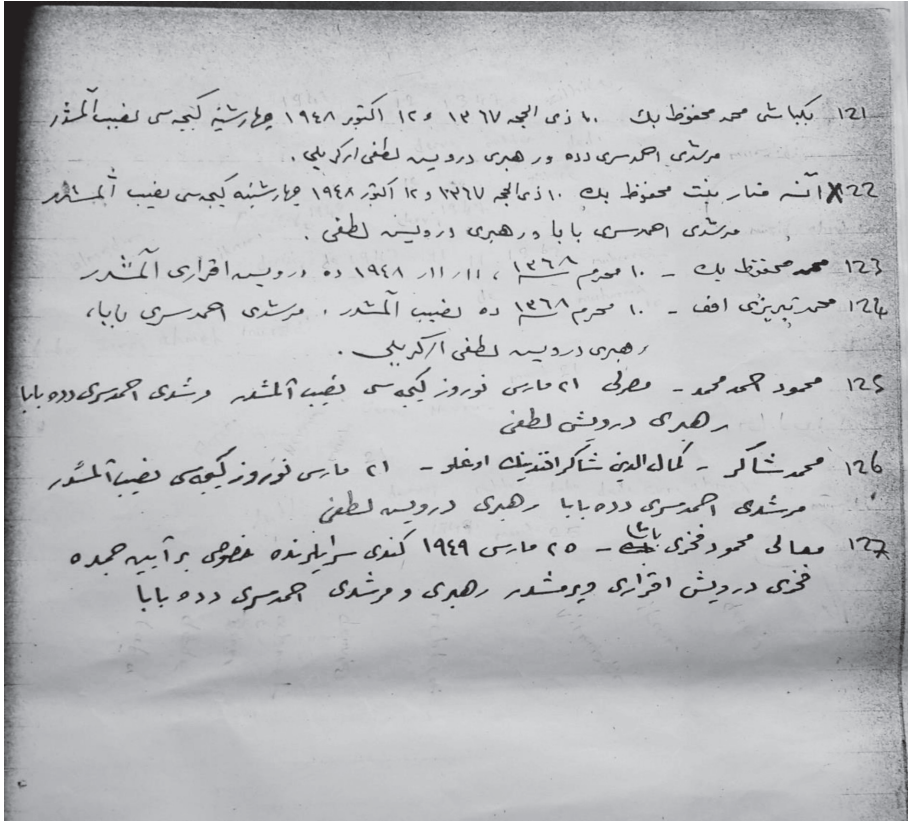 121 بكباشی محمد محفوظ بك ١٠ ذی الحجه ١٣٦٧ و ١٢ اكتوبر ١٩٤٨ چهارشنبه كیجه‌سی نصیب آلمشدر
مرشدی احمد سری دده و رهبری درویش لطفی اركریلی .
122 آنسه منار بنت محفوظ بك ١٠ ذی الحجه ١٣٦٧ و ١٢ اكتوبر ١٩٤٨ چهارشنبه كیجه‌سی نصیب آلمشدر
مرشدی احمد سری بابا و رهبری درویش لطفی .
123 محمد محفوظ بك - ١٠ محرم ١٣٦٨ ، ١١ر١١ر ١٩٤٨ ده درویش اقراری آلمشدر
124 محمد تبریزی افف - ١٠ محرم ١٣٦٨ ده نصیب آلمشدر . مرشدی احمد سری بابا ،
رهبری درویش لطفی اركریلی .
125 محمود حمد محمد - مصرلی ٢١ مارس نوروز كیجه‌سی نصیب آلمشدر مرشدی احمد سری دده بابا
رهبری درویش لطفی
126 محمد شاكر - كمال الدین شاكر افندینك اوغلو - ٢١ مارس نوروز كیجه‌سی نصیب آلمشدر
مرشدی احمد سری دده بابا رهبری درویش لطفی
127 معالی محمود فخری پاشا - ٢٥ مارس ١٩٤٩ كندی سرایلرنده خصوصی بر آیین جمده
فخری درویش اقراری ویرمشدر رهبری و مرشدی احمد سری دده بابا